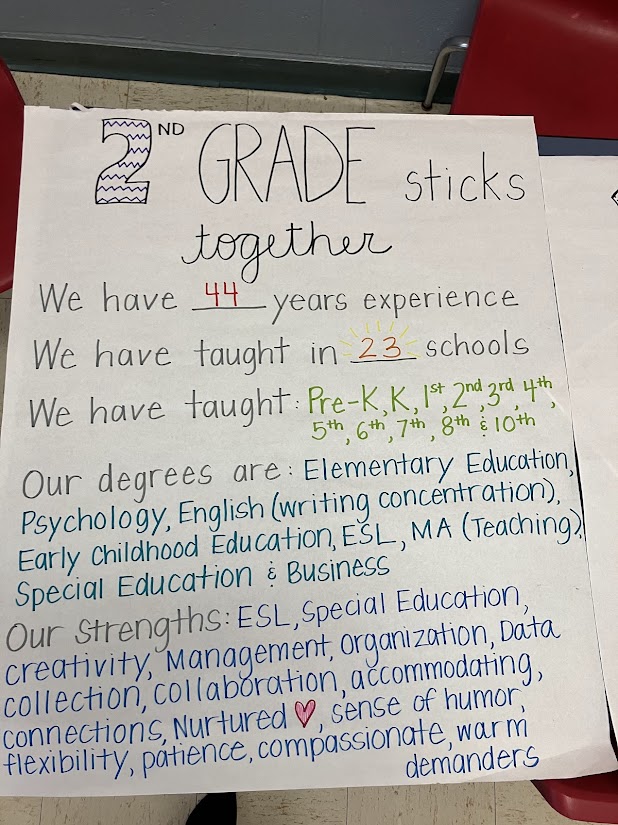 2ND GRADE sticks
together
We have 44 years experience
We have taught in 23 schools
We have taught: Pre-K, K, 1st, 2nd, 3rd, 4th,
5th, 6th, 7th, 8th & 10th
Our degrees are: Elementary Education,
Psychology, English (writing concentration),
Early Childhood Education, ESL, MA (Teaching),
Special Education & Business
Our Strengths: ESL, Special Education,
creativity, Management, Organization, Data
collection, collaboration, accommodating,
connections, Nurtured ♥, sense of humor,
flexibility, patience, compassionate, warm
demanders